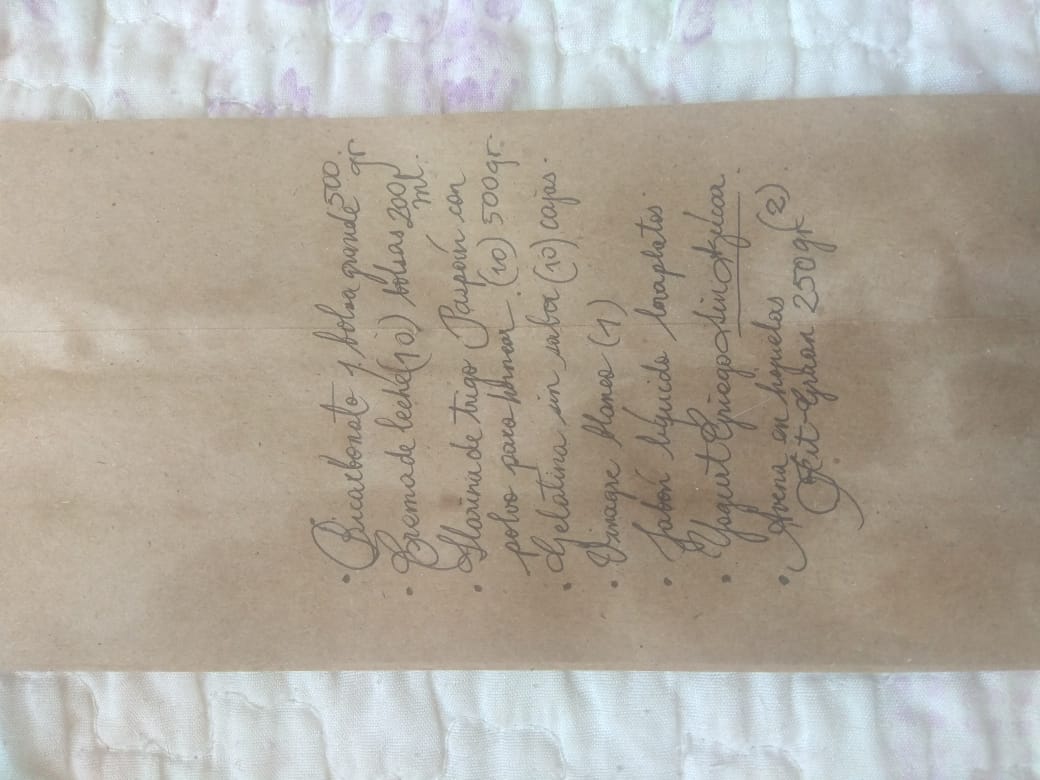 • Bicarbonato 1 bolsa grande 500 gr
• Crema de leche (10) bolsas 200 ml.
• Harina de trigo Paspan con
polvo para hornear (10) 500 gr.
• Gelatina sin sabor (10) cajas.
• Vinagre blanco (1)
• Jabón líquido lavaplatos
• Yogurt Griego Sin Azúcar.
• Avena en hojuelas (2)
Fit-Graan 250 gr